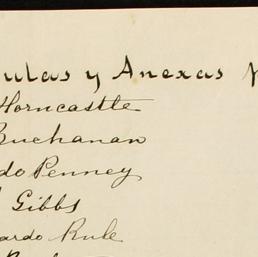 ulas y Anexas
Horncastle
Buchanan
do Penney
Gibbs
ardo Rule